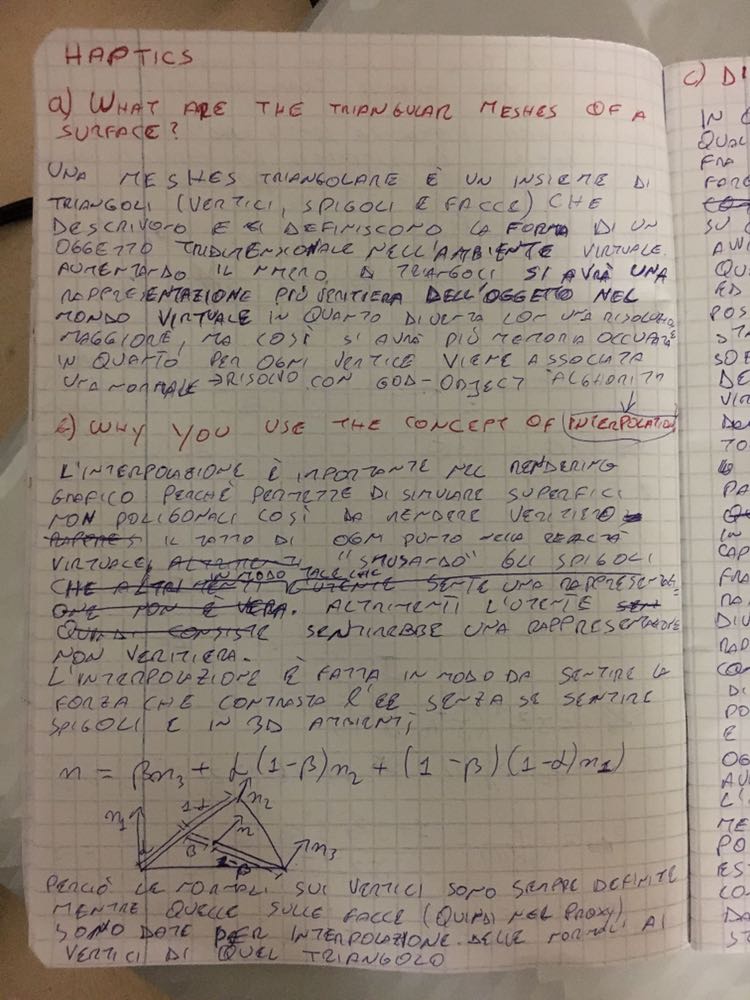 HAPTICS
a) WHAT ARE THE TRIANGULAR MESHES OF A
SURFACE?
UNA MESHES TRIANGOLARE È UN INSIEME DI
TRIANGOLI (VERTICI, SPIGOLI E FACCE) CHE
DESCRIVONO E DEFINISCONO LA FORMA DI UN
OGGETTO TRIDIMENSIONALE NELL'AMBIENTE VIRTUALE.
AUMENTANDO IL NUMERO DI TRIANGOLI SI AVRÀ UNA
RAPPRESENTAZIONE PIÙ VERITIERA DELL'OGGETTO NEL
MONDO VIRTUALE IN QUANTO DIVENTA CON UNA
MAGGIORE, MA COSÌ SI AVRÀ PIÙ MEMORIA OCCUPATA
IN QUANTO PER OGNI VERTICE VIENE ASSOCIATA
UNA NORMALE → RISOLVO CON GOD-OBJECT
b) WHY YOU USE THE CONCEPT OF INTERPOLATION
L'INTERPOLAZIONE È IMPORTANTE NEL RENDERING
GRAFICO PERCHÈ PERMETTE DI SIMULARE SUPERFICI
NON POLIGONALI COSÌ DA RENDERE VERITIERO
IL TATTO DI OGNI PUNTO NELLA REALTÀ
VIRTUALE, "SMUSANDO" GLI SPIGOLI
IN MODO TALE CHE
CHE ALTRIMENTI L'UTENTE SENTE UNA
NON È VERA. ALTRIMENTI L'UTENTE
QUINDI CONSISTE SENTIREBBE UNA RAPPRESENTAZIONE
NON VERITIERA.
L'INTERPOLAZIONE È FATTA IN MODO DA SENTIRE LA
FORZA CHE CONTRASTA L'EE SENZA SE SENTIRE
SPIGOLI E IN 3D AMBIENTI
n = βn₃ + α(1-β)n₂ + (1-β)(1-α)n₁)
n₁ 1-α n₂
β n n₃
1-β
PERCIÒ LE NORMALI SUI VERTICI SONO SEMPRE DEFINITE
MENTRE QUELLE SULLE FACCE (QUINDI NEL PROXY)
SONO DATE PER INTERPOLAZIONE DELLE NORMALI AI
VERTICI DI QUEL TRIANGOLO
c) DI